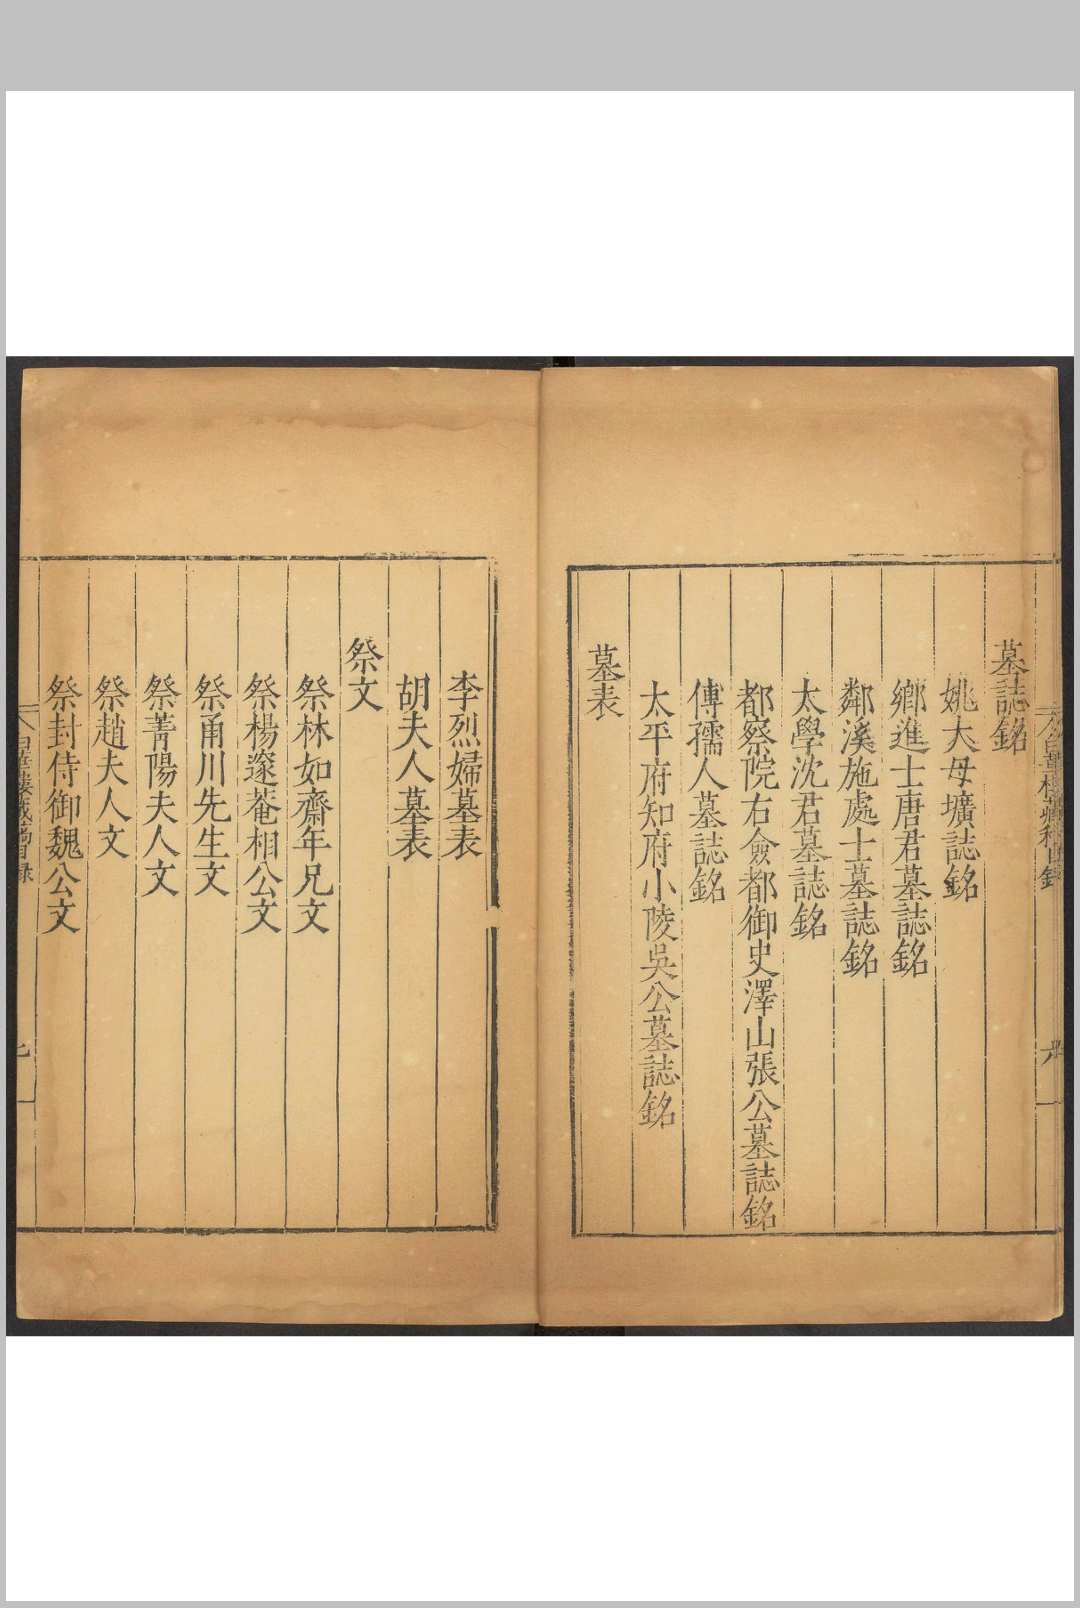 墓誌銘
姚大母壙誌銘
鄉進士唐君墓誌銘
鄰溪施處士墓誌銘
太學沈君墓誌銘
都察院右僉都御史澤山張公墓誌銘
傅孺人墓誌銘
太平府知府小陵吳公墓誌銘
墓表
李烈婦墓表
胡夫人墓表
祭文
祭林如齋年兄文
祭楊邃菴相公文
祭甬川先生文
祭菁陽夫人文
祭趙夫人文
祭封侍御魏公文